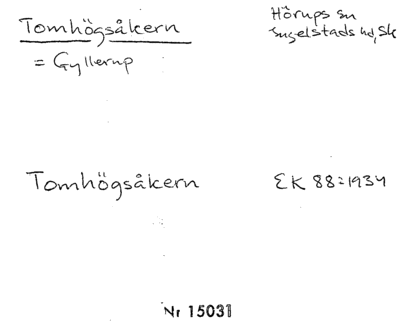 Tomhögsåkern
= Gyllerup
Hörups sn
Ingelstads hd, Sk
Tomhögsåkern
EK 88:1934
Nr 15031